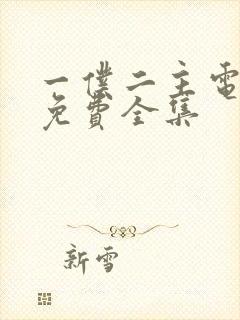 一僕二主電
免費全集
新雪